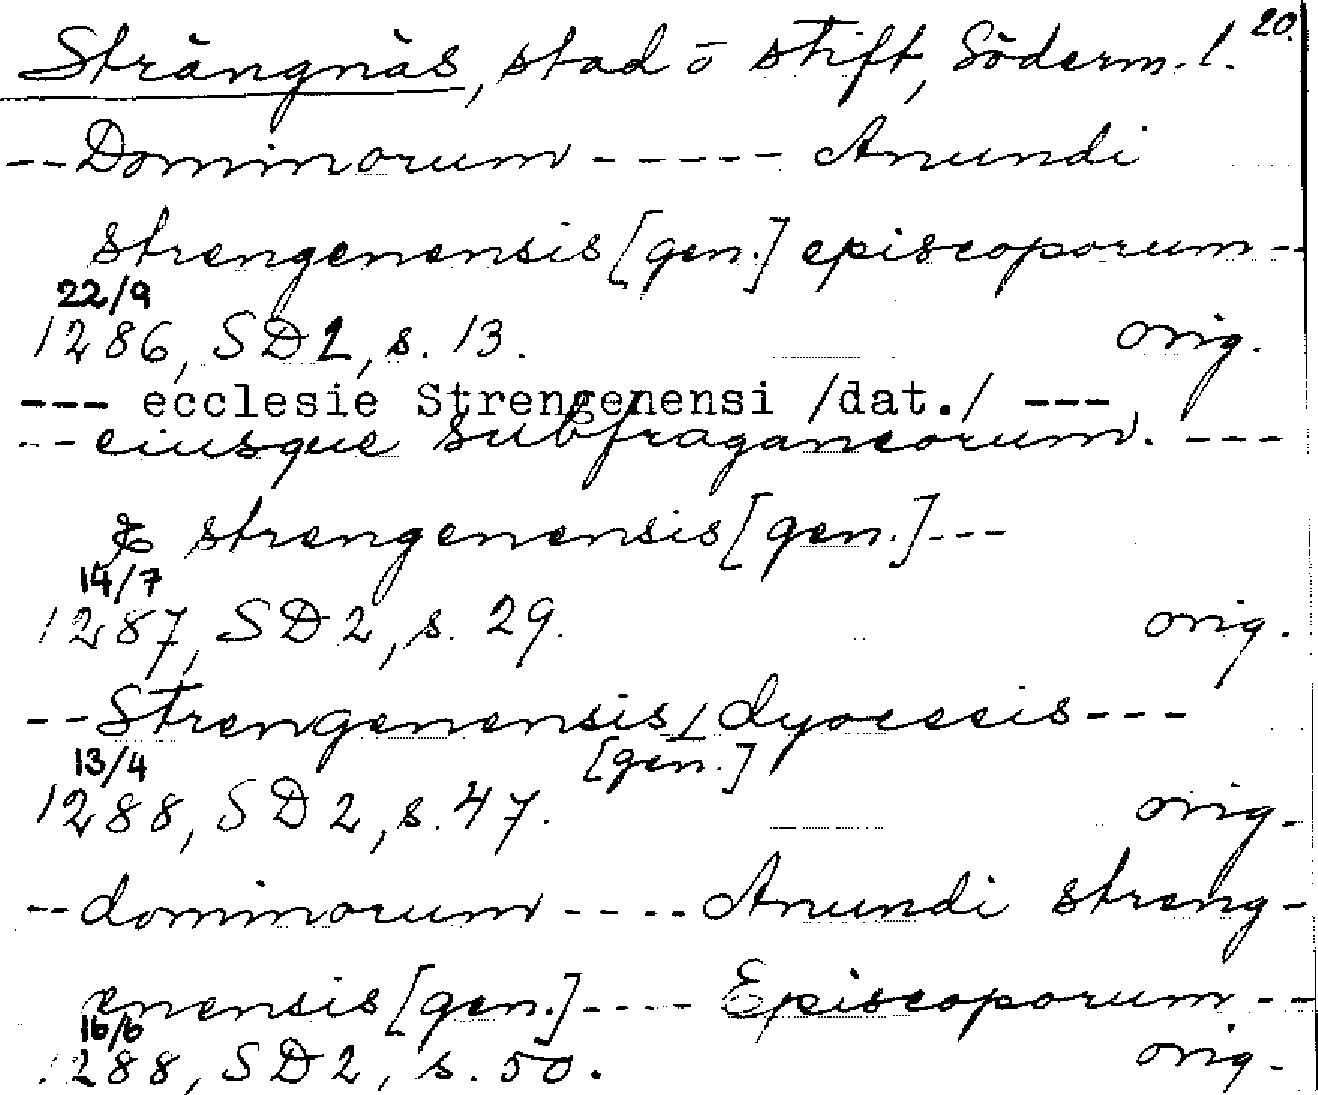 20.
Strängnäs, stad o stift, Söderm. l.
-- Dominorum ----- Anundi
strengenensis [gen.] episcoporum --
22/9
1286, SD 2, s. 13. orig.
--- ecclesie Strengenensi /dat./ ---
-- eiusque subfraganeorum. ---
& strengenensis [gen.] ---
14/7
1287, SD 2, s. 29. orig.
-- Strengenensis dyocesis ---
[gen.]
13/4
1288, SD 2, s. 47. orig.
-- dominorum ---- Anundi streng-
enensis [gen.] ---- Episcoporum --
16/6
1288, SD 2, s. 50. orig.